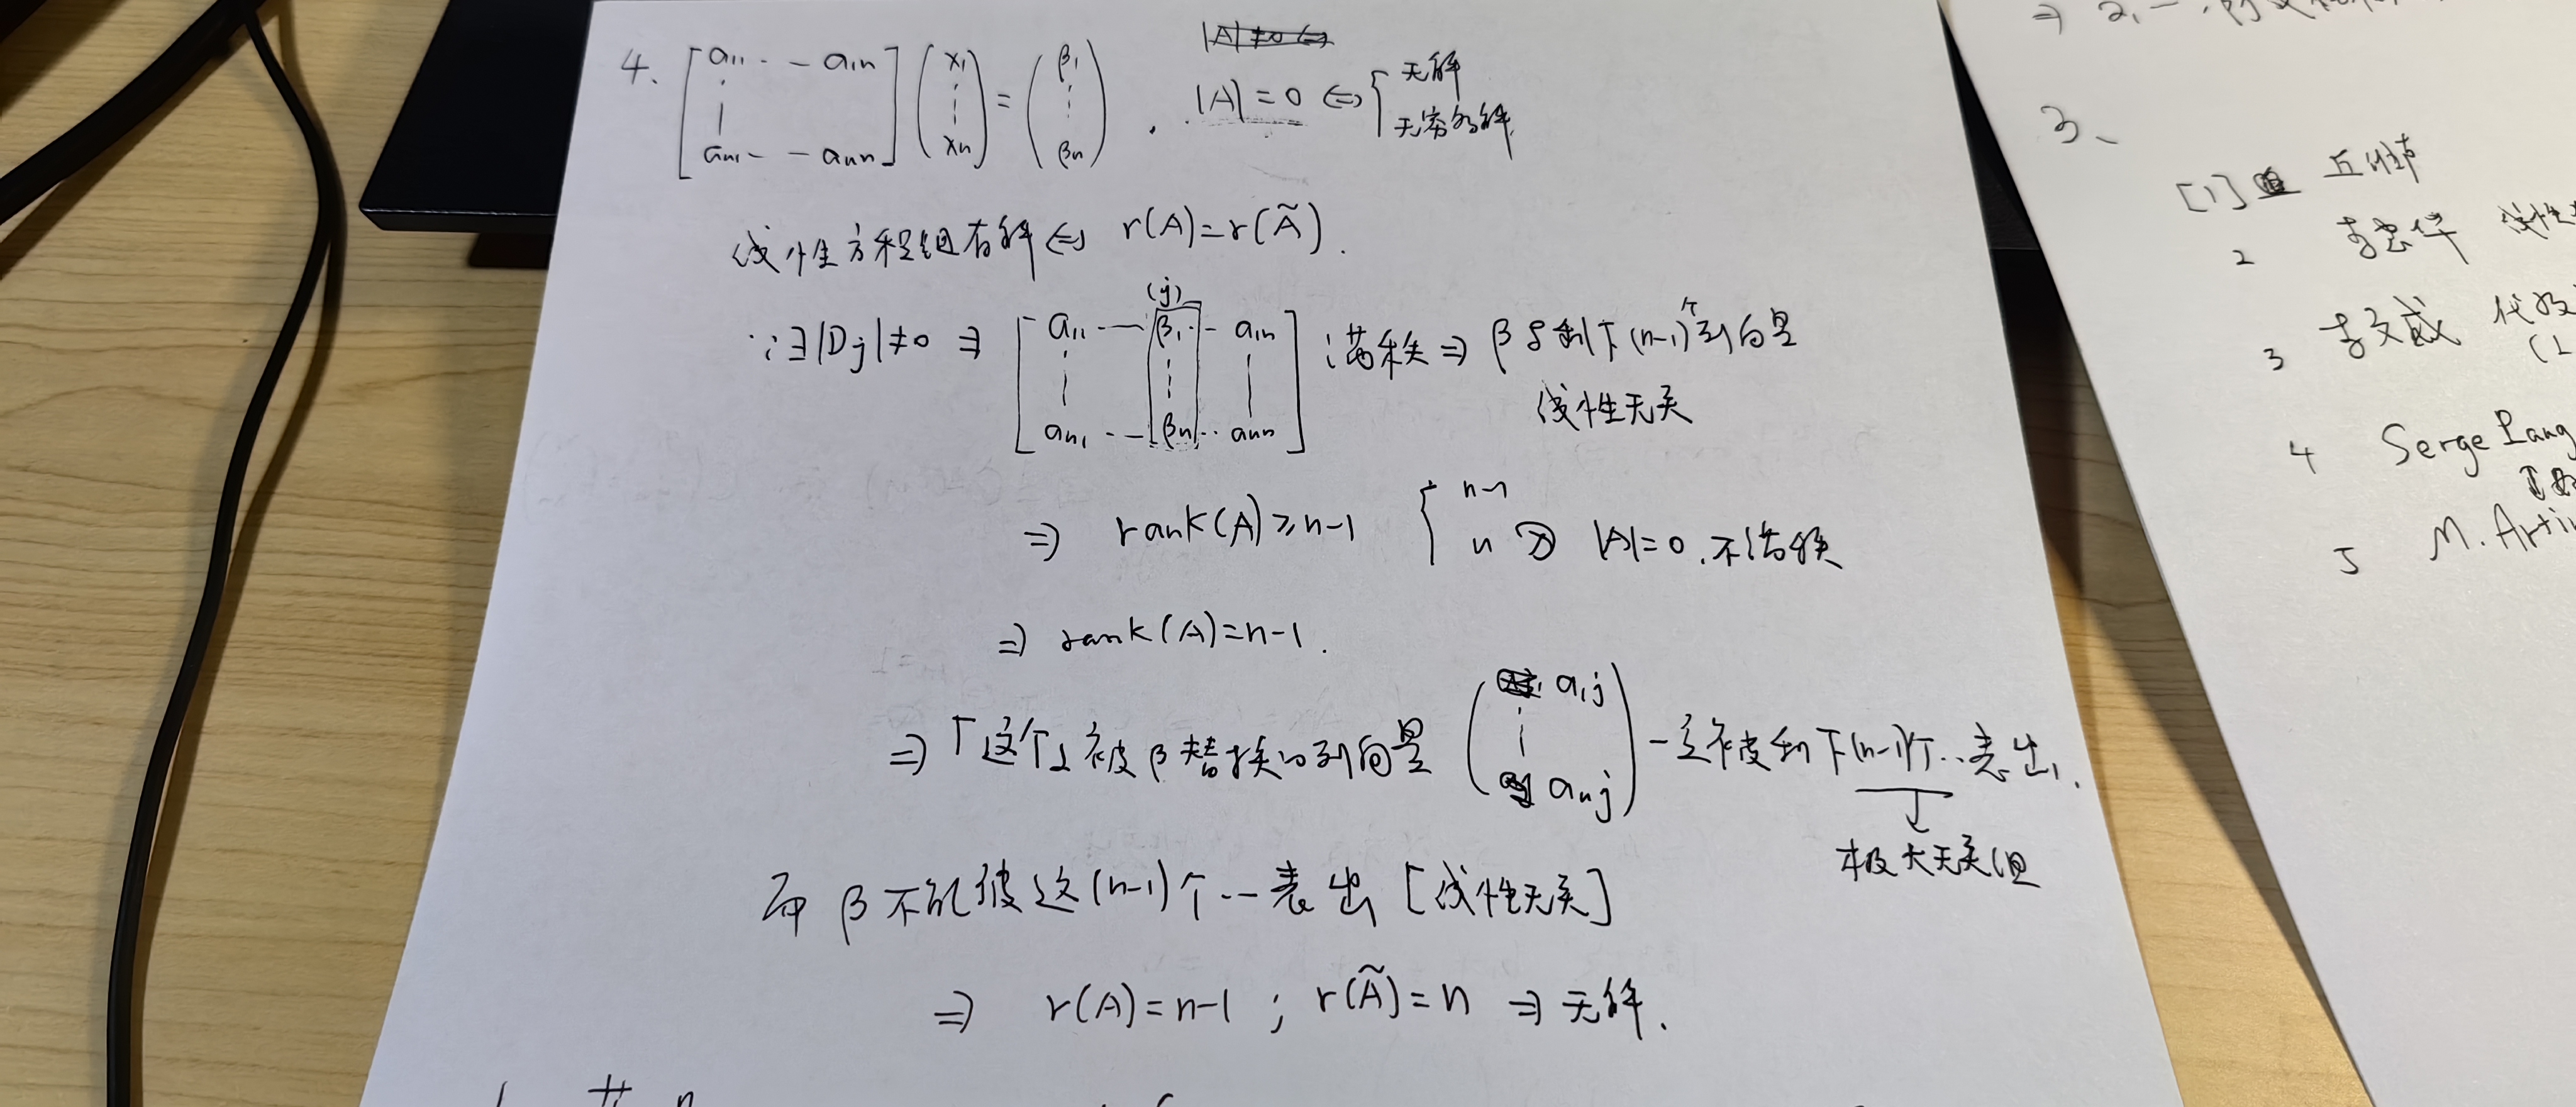 4. [a₁₁ - - a₁n ⋮ an₁ - - ann] (x₁ ⋮ xn) = (β₁ ⋮ βn) . |A| = 0 ⇔ { 无解 无穷多解.
线性方程组有解 ⇔ r(A)=r(Ã).
∵∃|Dj|≠0 ⇒ [a₁₁ -- β₁ - a₁n ⋮ an₁ -- βn -- ann] (j) 满秩 ⇒ β与剩下(n-1)个列向量
线性无关
⇒ rank(A)≥n-1 { n-1 n |A|=0.不满秩
⇒ rank(A)=n-1.
⇒「这个」被β替换的列向量 (a₁j ⋮ anj) 一定被剩下(n-1)个…表出.
极大无关组
而β不能被这(n-1)个…表出[线性无关]
⇒ r(A)=n-1 ; r(Ã)=n ⇒ 无解.
3、
[1] 丘维声
2
3 李文威
4 Serge Lang
5 M. Artin